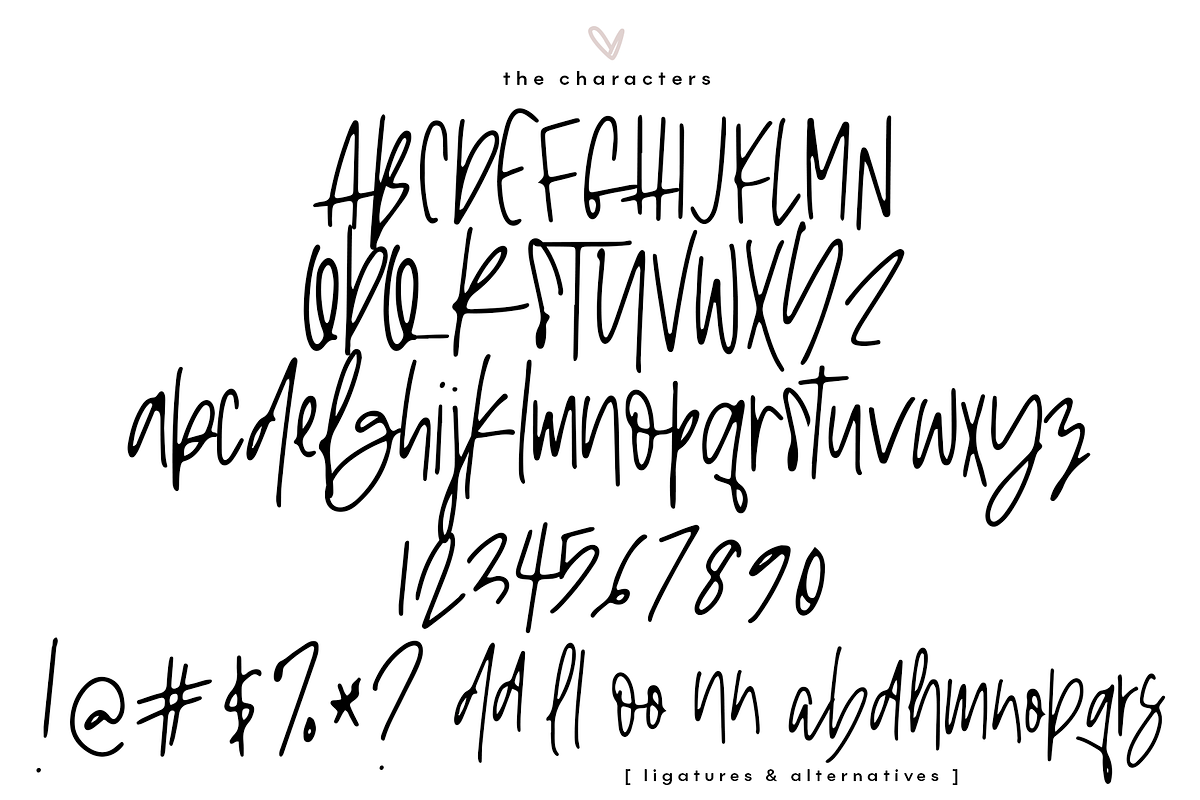 the characters
ABCDEFGHIJKLMN
OPQRSTUVWXYZ
abcdefghijklmnopqrstuvwxyz
1234567890
!@#$%*? dd ll oo nn abdhmnopqrs
[ ligatures & alternatives ]